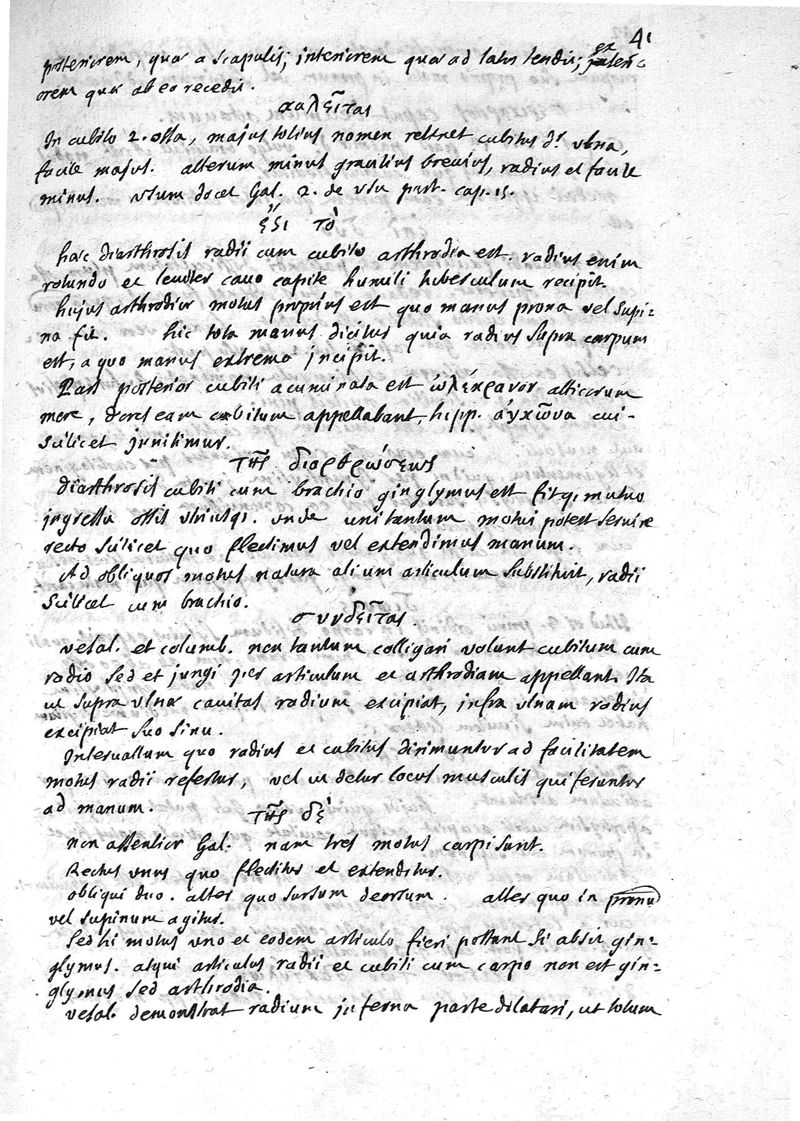 41
posteriorem, quae a scapulis; interiorem quae ad latus tendit; ex
orem quae ab eo recedit.
καλεῖται
In cubito 2. ossa, majus totius nomen retinet cubitus dr. ulna,
facile majus. alterum minus gracilius brevius, radius et facile
minus. usum docet Gal. 2. de usu part. cap. 15.
ἔϛι τὸ
haec diarthrosis radii cum cubito arthrodia est. radius enim
rotundo et leviter cavo capite humili tuberculum recipit.
hujus arthrodiae motus proprius est quo manus prona vel supi=
na fit. hic tota manus dicitur quia radius supra carpum
est, a quo manus extrema incipit.
Pars posterior cubiti acuminata est ὠλέκρανον atticorum
more, dores eam cubitum appellabant, hipp. ἀγκῶνα cui-
scilicet innitimur.
τῆς διαρθρώσεως
diarthrosis cubiti cum brachio ginglymus est fitq; mutuo
ingressu ossis utriusq;. unde uni tantum motui potest servire
recto scilicet quo flectimus vel extendimus manum.
Ad obliquos motus natura alium articulum substituit, radii
scilicet cum brachio.
συνδεῖται.
vesal. et columb. non tantum colligari volunt cubitum cum
radio sed et jungi per articulum et arthrodiam appellant. Ita
ut supra ulnae cavitas radium excipiat, infra ulnam radius
excipiat suo sinu.
Intervallum quo radius et cubitus dirimuntur ad facilitatem
motus radii refertur, vel ut detur locus musculis qui feruntur
ad manum.
τῆς δὲ
non assentior Gal. nam tres motus carpi sunt.
Rectus unus quo flectitur et extenditur.
obliqui duo. alter quo sursum deorsum. alter quo in pronu
vel supinum agitur.
Sed hi motus uno et eodem articulo fieri possunt si absit gin=
glymus. atqui articulus radii et cubiti cum carpo non est gin=
glymus sed arthrodia.
vesal. demonstrat radium inferna parte dilatari, ut totum